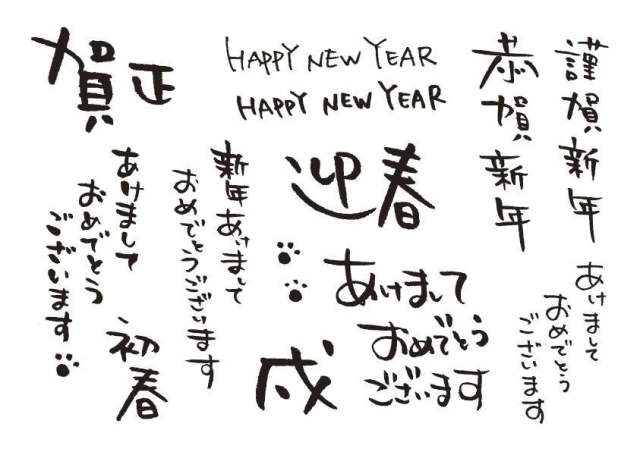 賀正
HAPPY NEW YEAR
HAPPY NEW YEAR
謹賀新年
恭賀新年
迎春
新年あけまして
おめでとうございます
あけまして
おめでとう
ございます
初春
戌
あけまして
おめでとう
ございます
あけまして
おめでとう
ございます